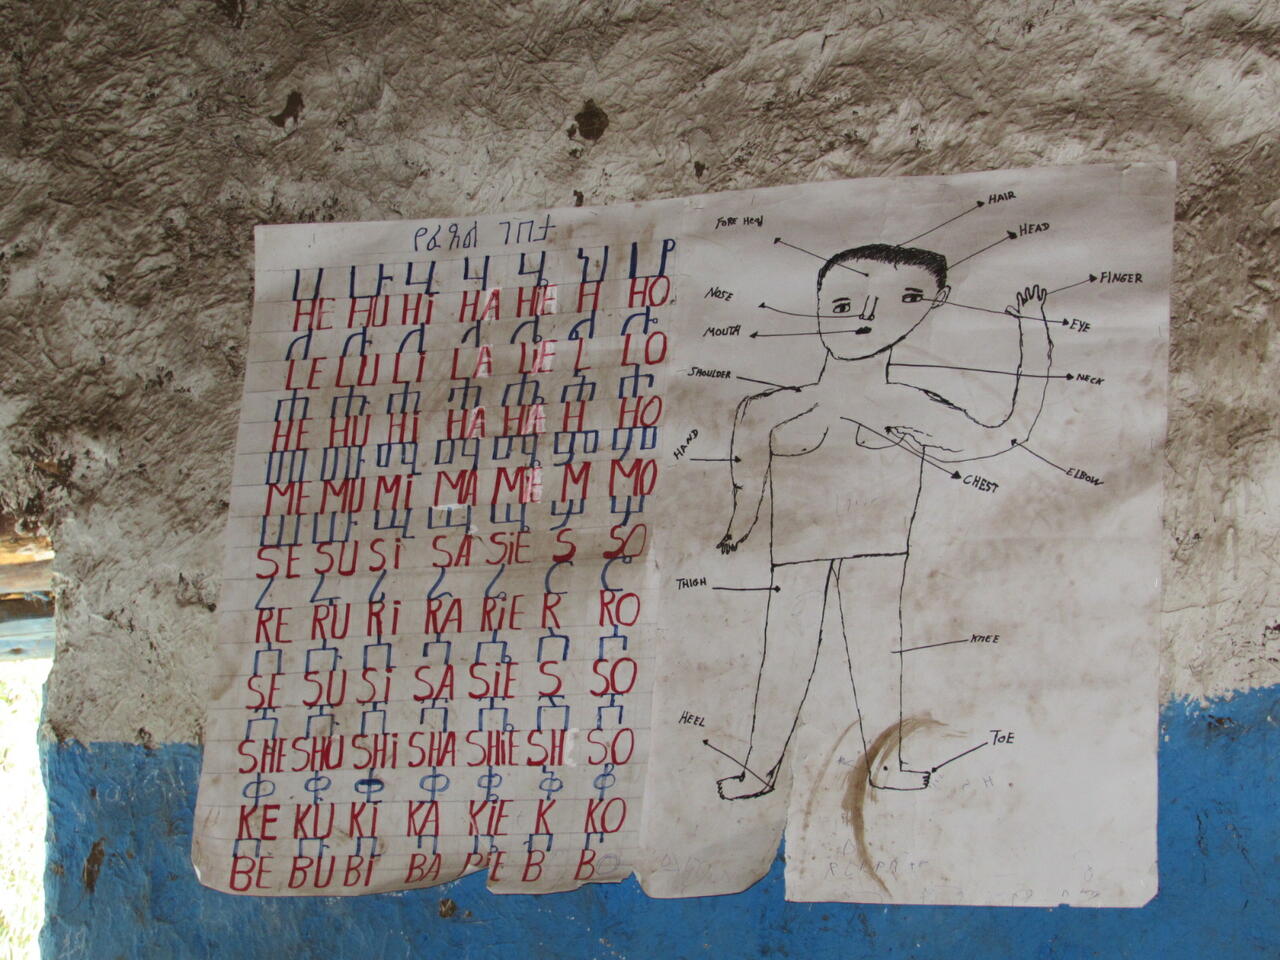 የፊደል ገበታ
ሀ ሁ ሂ ሃ ሄ ህ ሆ
HE HU Hi HA HiE H HO
ለ ሉ ሊ ላ ሌ ል ሎ
LE LU Li LA LiE L LO
ሐ ሑ ሒ ሓ ሔ ሕ ሖ
HE HU Hi HA HA H HO
መ ሙ ሚ ማ ሜ ም ሞ
ME MU Mi MA MiE M MO
ሠ ሡ ሢ ሣ ሤ ሥ ሦ
SE SU Si SA SiE S SO
ረ ሩ ሪ ራ ሬ ር ሮ
RE RU Ri RA RiE R RO
ሰ ሱ ሲ ሳ ሴ ስ ሶ
SE SU Si SA SiE S SO
ሸ ሹ ሺ ሻ ሼ ሽ ሾ
SHE SHU SHi SHA SHiE SH SO
ቀ ቁ ቂ ቃ ቄ ቅ ቆ
KE KU Ki KA KiE K KO
BE BU Bi BA B
HAIR
FORE
HEAD
FINGER
NOSE
EYE
MOUTH
SHOULDER
NECK
HAND
CHEST
ELBOW
THIGH
KNEE
HEEL
TOE